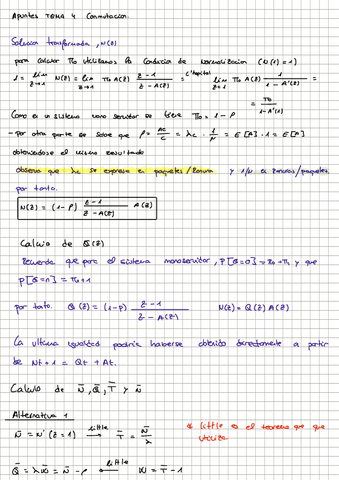 Apuntes TEMA 4 Conmutacion.
Solucion transformada, N(z)
para calcular π₀ utilizamos la condicion de Normalizacion (N(1)=1)
1 = lim z→1 N(z) = lim z→1 π₀ A(z) (z-1)/(z-A(z)) = L'Hopital = lim z→1 π₀ A(z) 1/(1-A'(z)) =
= π₀/(1-A'(1))
Como es un sistema mono servidor se tiene π₀ = 1-ρ
- por otra parte se sabe que ρ = λc/C = λc · 1/μ = E[A]·1 = E[A]
obteniendose el mismo resultado
observa que λc se expresa en paquetes/ranura y 1/μ en ranuras/paquetes
por tanto.
N(z) = (1-ρ) (z-1)/(z-A(z)) A(z)
Calculo de Q(z)
Recuerda que para el sistema monoservidor, P[Q=0] = π₀+π₁ y que
P[Q=n] = πn+1
por tanto. Q(z) = (1-ρ) (z-1)/(z-A(z)) N(z) = Q(z) A(z)
La ultima igualdad podria haberse obtenido directamente a partir
de Nt+1 = Qt + At.
Calculo de N̄, Q̄, T̄ y W̄
Alternativa 1
N̄ = N'(z=1) little → T̄ = N̄/λ
* little es el teorema que que
utiliza
Q̄ = λW̄ = N̄ - ρ ← little W̄ = T̄ - 1